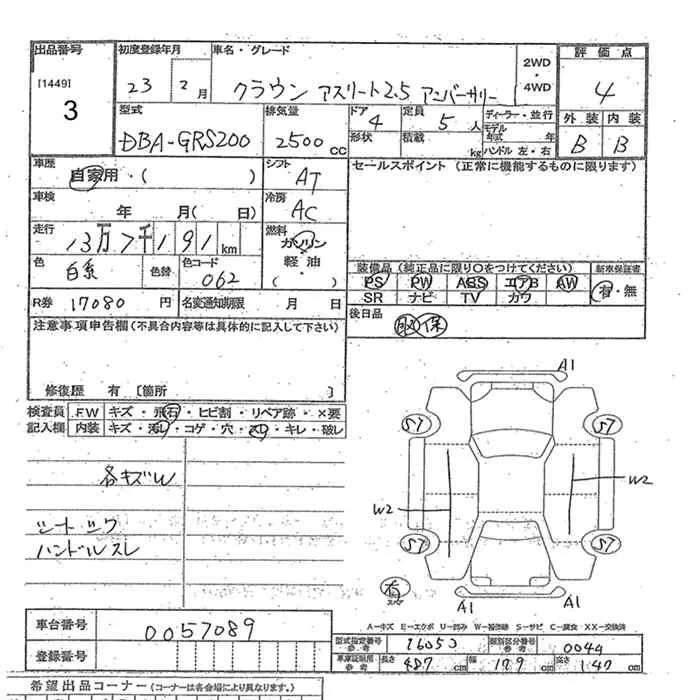 出品番号
[1449]
3
初度登録年月
23 2月
車名・グレード
クラウン アスリート2.5 アニバーサリー
2WD
・
4WD
評価点
4
外装 内装
B B
型式
DBA-GRS200
排気量
2500cc
ドア
4
形状
定員
5人
積載
kg
ディーラー・並行
モデル年式 年
ハンドル 左・右
車歴
自家用・( )
シフト
AT
車検
年 月( 日)
冷房
AC
走行
13万7千191km
燃料
ガソリン
軽・油
( )
色
白系
色替
色コード
062
R券 17080円
名変通知期限 月 日
セールスポイント (正常に機能するものに限ります)
装備品(純正品に限り○をつけてください)
PS PW ABS エアB AW
SR ナビ TV カワ
新車保証書
有・無
後日品
取 保
注意事項申告欄(不具合内容等は具体的に記入して下さい)
修復歴 有 [箇所 ]
検査員記入欄
FW キズ・飛石・ヒビ割・リペア跡・×要
内装 キズ・汚レ・コゲ・穴・スレ・キレ・破レ
各キズW
シートシワ
ハンドルスレ
A1
57 57
W2
W2
57 57
有
スペア
A1 A1
A-キズ E-エクボ U-凹み W-補修跡 S-サビ C-腐食 XX-交換済
車台番号
0057089
登録番号
型式指定番号 参考 16053
類別区分番号 参考 0044
車庫証明用 参考 長さ 487cm 幅 179cm 高さ 147cm
希望出品コーナー(コーナーは各会場により異なります)